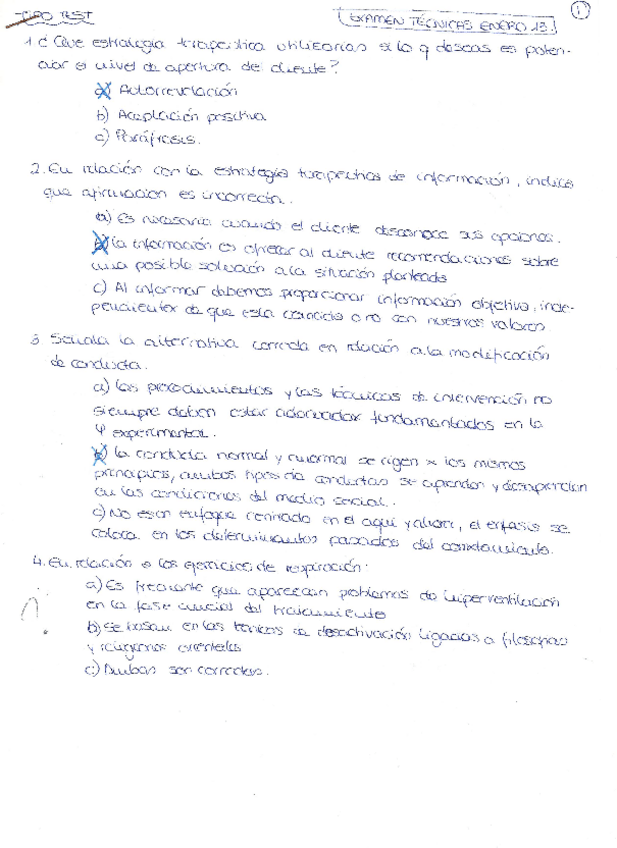 TIPO TEST
EXAMEN TÉCNICAS ENERO 13.
1
1. ¿Que estrategia terapeutica utilizarias si lo q deseas es poten-
ciar el nivel de apertura del cliente?
a) Autorrevelación
b) Aceptación positiva
c) Paráfrasis.
2. En relación con la estrategia terapeutica de información, indica
que afirmacion es incorrecta.
a) Es necesaria cuando el cliente desconoce sus opciones.
b) la información es ofrecer al cliente recomendaciones sobre
una posible solución a la situación planteada
c) Al informar debemos proporcionar información objetiva, inde-
pendientes de que esta coincida o no con nuestros valores
3 Señala la alternativa correcta en relación a la modificación
de conducta.
a) los procedimientos y las técnicas de intervención no
siempre deben estar adecuados fundamentados en la
Ψ experimental.
b) la conducta normal y anormal se rigen x los mismos
principios, ambos tipos de conductas se aprenden y desaprenden
en las condiciones del medio social.
c) No es un enfoque centrado en el aqui y ahora, el énfasis se
coloca en los determinantes pasados del comportamiento.
4. En relación a los ejercicios de respiración:
a) Es frecuente que aparezcan problemas de hiperventilación
en la fase inicial del tratamiento
b) se basan en las tecnicas de desactivación ligadas a filosofias
y religiones orientales
c) Ambas son correctas.
?